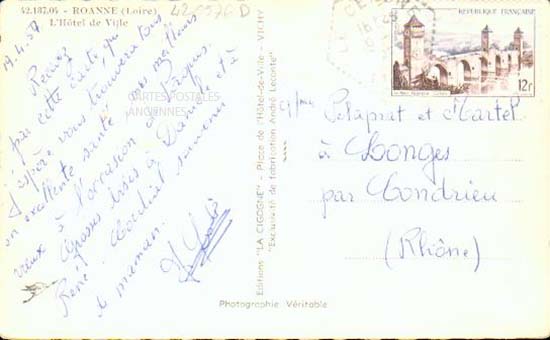 42.187.05 - ROANNE (Loire)
L'Hôtel de Ville
19.4.57
Recevez
par cette carte, qui
j'espère vous trouvera tous
en excellente santé mes meilleurs
vœux à l'occasion de Pâques.
Grosses bises à Daniel et à
René. Cordial souvenir
à maman.
CARTES POSTALES
ANCIENNES
Editions "LA CIGOGNE" - Place de l'Hôtel-de-Ville - VICHY
"Exclusivité de fabrication André Leconte"
Photographie Véritable
RÉPUBLIQUE FRANÇAISE
12f
et Martel
à Longes
par Condrieu
(Rhône)